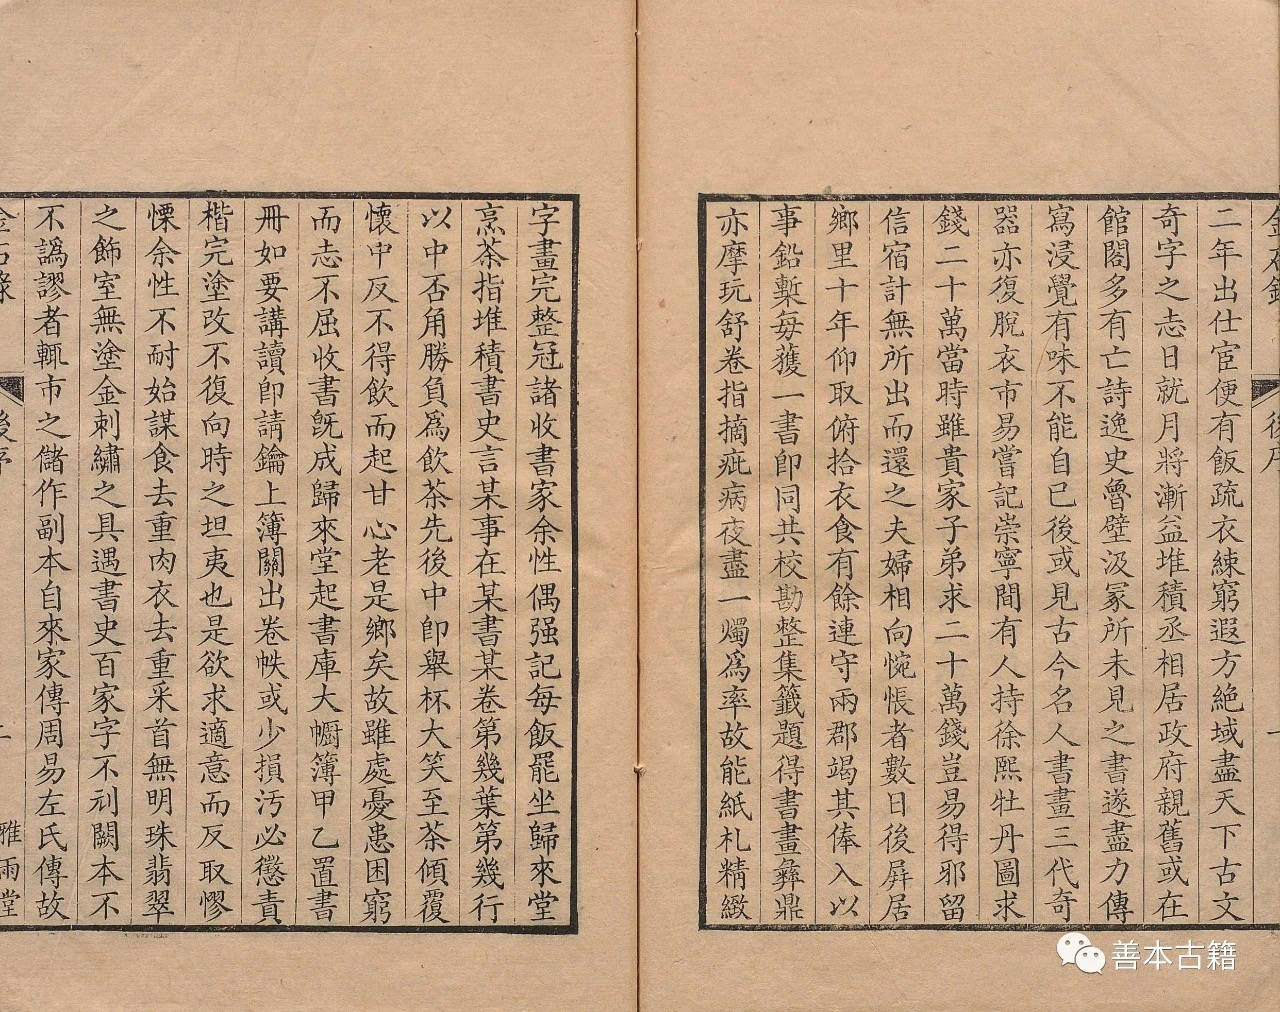 金石錄 後序 一
二年出仕宦便有飯疏衣練窮遐方絶域盡天下古文
奇字之志日就月將漸益堆積丞相居政府親舊或在
館閣多有亡詩逸史魯壁汲冢所未見之書遂盡力傳
寫浸覺有味不能自已後或見古今名人書畫三代奇
器亦復脫衣市易嘗記崇寧間有人持徐熙牡丹圖求
錢二十萬當時雖貴家子弟求二十萬錢豈易得邪留
信宿計無所出而還之夫婦相向惋悵者數日後屛居
鄉里十年仰取俯拾衣食有餘連守兩郡竭其俸入以
事鉛槧每獲一書卽同共校勘整集籤題得書畫彝鼎
亦摩玩舒卷指摘疵病夜盡一燭爲率故能紙札精緻
字畫完整冠諸收書家余性偶强記每飯罷坐歸來堂
烹茶指堆積書史言某事在某書某卷第幾葉第幾行
以中否角勝負爲飲茶先後中卽舉杯大笑至茶傾覆
懷中反不得飲而起甘心老是鄉矣故雖處憂患困窮
而志不屈收書旣成歸來堂起書庫大櫥簿甲乙置書
冊如要講讀卽請鑰上簿關出卷帙或少損汚必懲責
楷完塗改不復向時之坦夷也是欲求適意而反取憀
慄余性不耐始謀食去重肉衣去重采首無明珠翡翠
之飾室無塗金刺繡之具遇書史百家字不刓闕本不
不譌謬者輒市之儲作副本自來家傳周易左氏傳故
金石錄 後序 二 雅雨堂
善本古籍